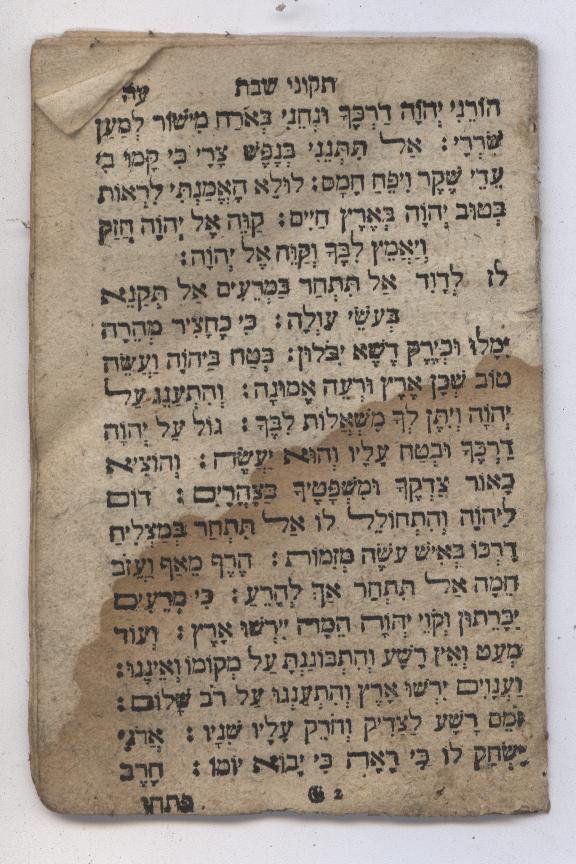 תקוני שבת עה
הורני יְהוָֹה דַרְכֶּךָ וּנְחֵנִי בְּאֹרַח מִישׁוֹר לְמַעַן
שֹׁרְרָי: אַל תִּתְּנֵנִי בְּנֶפֶשׁ צָרָי כִּי קָמוּ בִי
עֵדֵי שֶׁקֶר וִיפֵּחַ חָמָס: לוּלֵא הֶאֱמַנְתִּי לִרְאוֹת
בְּטוּב יְהוָֹה בְּאֶרֶץ חַיִּים: קַוֵּה אֶל יְהוָֹה חֲזַק
וְיַאֲמֵץ לִבֶּךָ וְקַוֵּה אֶל יְהוָֹה:
לז לְדָוִד אַל תִּתְחַר בַּמְּרֵעִים אַל תְּקַנֵּא
בְּעֹשֵׂי עַוְלָה: כִּי כֶחָצִיר מְהֵרָה
יִמָּלוּ וּכְיֶרֶק דֶּשֶׁא יִבּוֹלוּן: בְּטַח בַּיהוָֹה וַעֲשֵׂה
טוֹב שְׁכָן אֶרֶץ וּרְעֵה אֱמוּנָה: וְהִתְעַנַּג עַל
יְהוָֹה וְיִתֶּן לְךָ מִשְׁאֲלוֹת לִבֶּךָ: גּוֹל עַל יְהוָֹה
דַּרְכֶּךָ וּבְטַח עָלָיו וְהוּא יַעֲשֶׂה: וְהוֹצִיא
כָאוֹר צִדְקֶךָ וּמִשְׁפָּטֶיךָ כַּצָּהֳרָיִם: דּוֹם
לַיהוָֹה וְהִתְחוֹלֵל לוֹ אַל תִּתְחַר בְּמַצְלִיחַ
דַּרְכּוֹ בְּאִישׁ עֹשֶׂה מְזִמּוֹת: הֶרֶף מֵאַף וַעֲזֹב
חֵמָה אַל תִּתְחַר אַךְ לְהָרֵעַ: כִּי מְרֵעִים
יִכָּרֵתוּן וְקֹוֵי יְהוָֹה הֵמָּה יִירְשׁוּ אָרֶץ: וְעוֹד
מְעַט וְאֵין רָשָׁע וְהִתְבּוֹנַנְתָּ עַל מְקוֹמוֹ וְאֵינֶנּוּ:
וַעֲנָוִים יִרְשׁוּ אָרֶץ וְהִתְעַנְּגוּ עַל רֹב שָׁלוֹם:
זֹמֵם רָשָׁע לַצַּדִּיק וְחֹרֵק עָלָיו שִׁנָּיו: אֲדֹנָי
יִשְׂחַק לוֹ כִּי רָאָה כִּי יָבוֹא יוֹמוֹ: חֶרֶב
2 פתחו